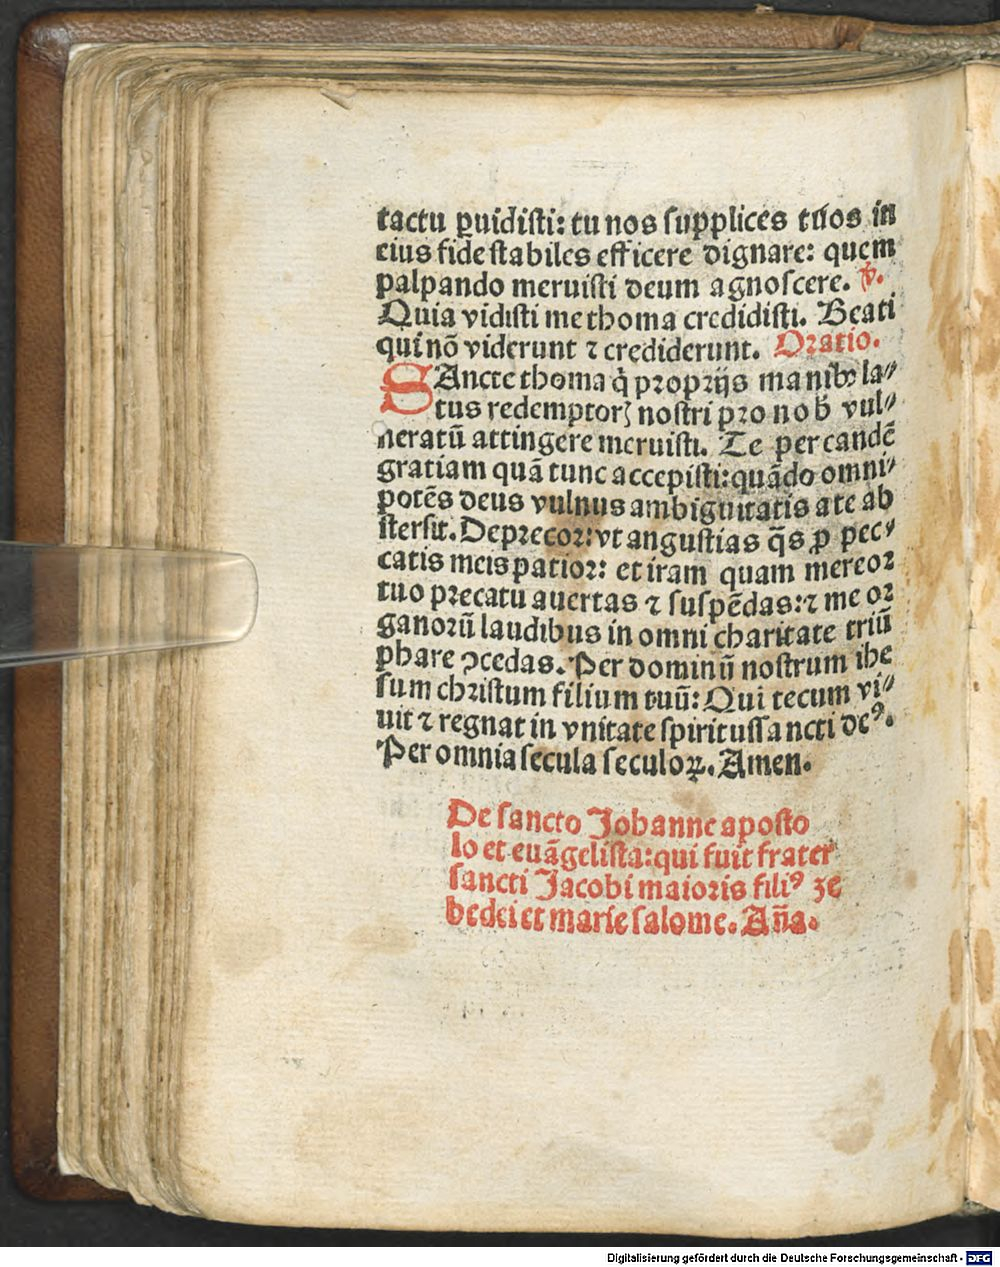 tactu ꝑuidisti: tu nos supplices tuos in
eius fide stabiles efficere dignare: quem
palpando meruisti deum agnoscere. ℣.
Quia vidisti me thoma credidisti. Beati
qui nō viderunt ⁊ crediderunt. Oratio.
SAncte thoma q̇ proprijs manibꝰ la⸗
tus redemptorꝫ nostri pro nob̄ vul⸗
neratū attingere meruisti. Te per eandē
gratiam quā tunc accepisti: quādo omni⸗
potēs deus vulnus ambiguitatis a te ab
stersit. Deprecor: vt angustias q̄s ꝓ pec⸗
catis meis patior: et iram quam mereor
tuo precatu auertas ⁊ suspēdas: ⁊ me or
ganorū laudibus in omni charitate triū
phare ꝯcedas. Per dominū nostrum ihe
sum christum filium tuū: Qui tecum vi⸗
uit ⁊ regnat in vnitate spiritussancti deꝰ.
Per omnia secula seculoꝝ. Amen.
De sancto Johanne aposto
lo et euāgelista: qui fuit frater
sancti Jacobi maioris filiꝰ ze
bedei et marie salome. Aña.
Digitalisierung gefördert durch die Deutsche Forschungsgemeinschaft - DFG